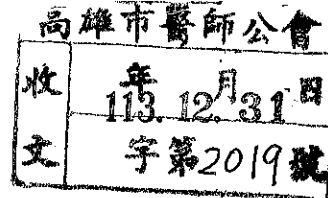 高雄市醫師公會
收文
年 月 日
113.12.31
字第2019號